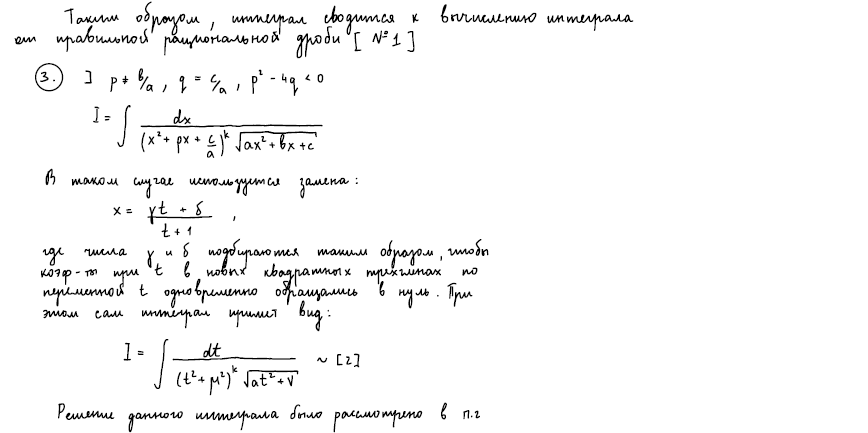 Таким образом, интеграл сводится к вычислению интеграла
от правильной рациональной дроби [№1]
3. ] p ≠ b/a, q = c/a, p² - 4q < 0
I = ∫ dx / ((x² + px + c/a)^k √(ax² + bx + c))
В таком случае используется замена:
x = (γt + δ) / (t + 1),
где числа γ и δ подбираются таким образом, чтобы
коэф-ты при t в новых квадратных трёхчленах по
переменной t одновременно обращались в нуль. При
этом сам интеграл примет вид:
I = ∫ dt / ((t² + μ²)^k √(at² + v)) ~ [2]
Решение данного интеграла было рассмотрено в п.2